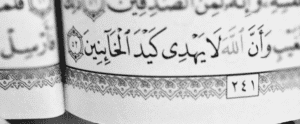 لَمِنَ الصَّٰدِقِينَ
وَأَنَّ اللَّهَ لَا يَهْدِى كَيْدَ الْخَآئِنِينَ ٥٢
٢٤١